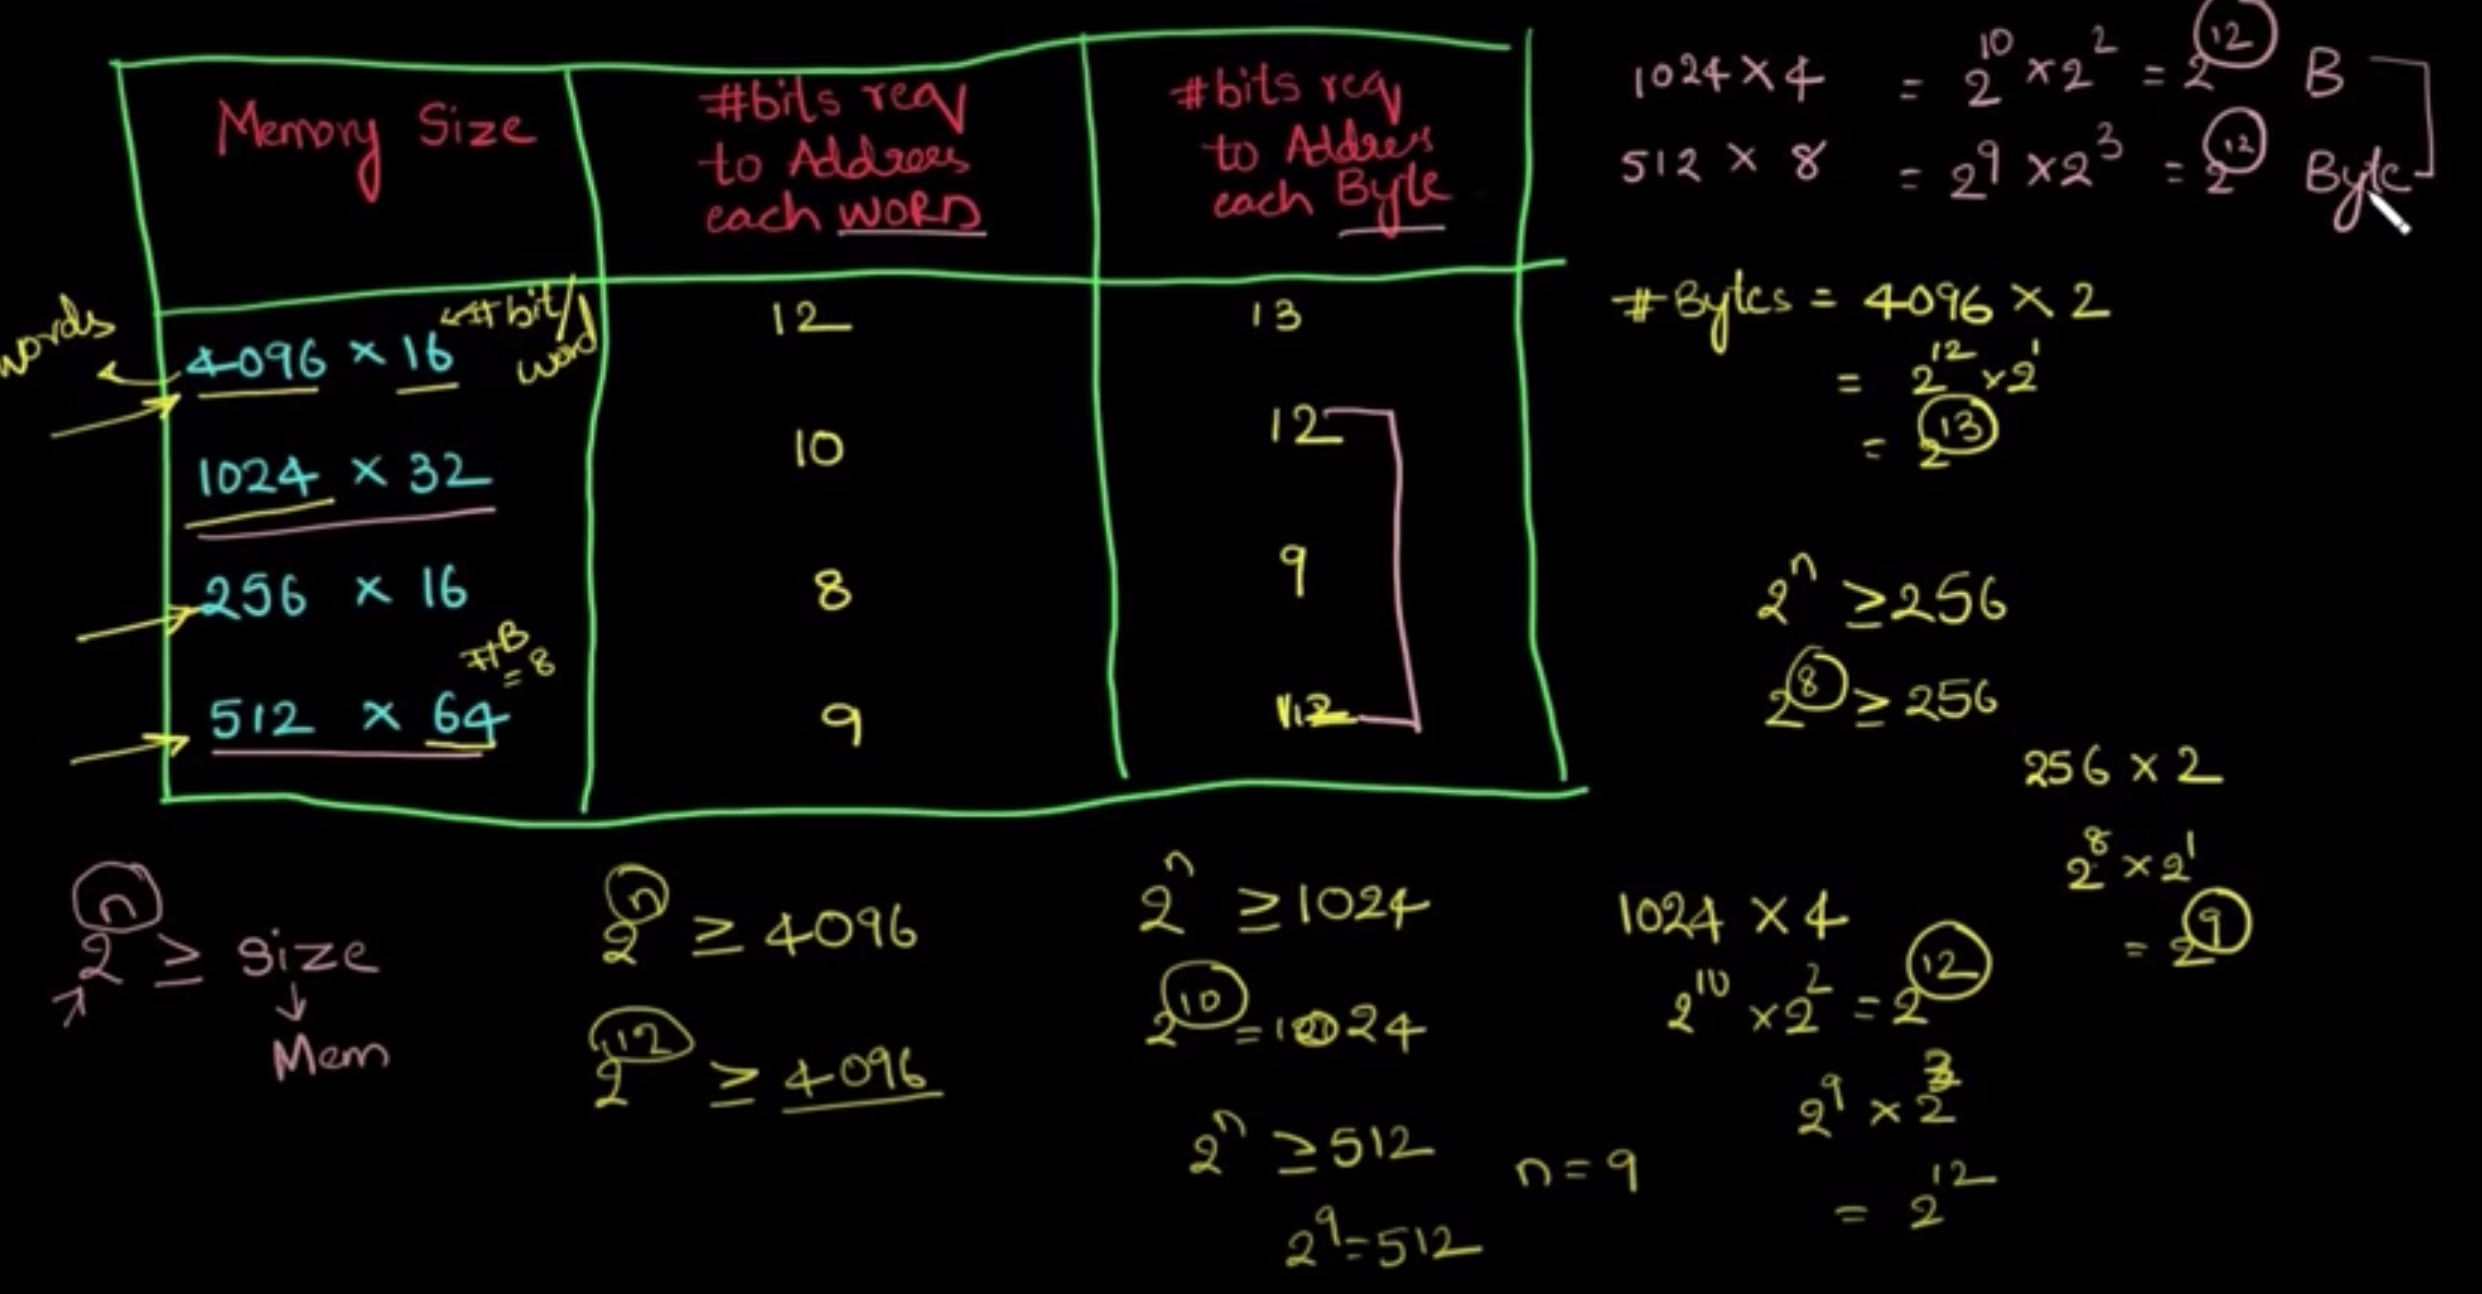 Memory Size
#bits req
to Address
each WORD
#bits req
to Address
each Byte
words
4096 × 16
#bit/
word
12
13
1024 × 32
10
12
256 × 16
8
9
#B
= 8
512 × 64
9
12
1024 × 4 = 2^10 × 2^2 = 2^12 B
512 × 8 = 2^9 × 2^3 = 2^12 Byte
#Bytes = 4096 × 2
= 2^12 × 2^1
= 2^13
2^n ≥ 256
2^8 ≥ 256
256 × 2
2^8 × 2^1
= 2^9
2^n ≥ size
Mem
2^n ≥ 4096
2^12 ≥ 4096
2^n ≥ 1024
2^10 = 1024
2^n ≥ 512 n = 9
2^9 = 512
1024 × 4
2^10 × 2^2 = 2^12
2^9 × 2^3
= 2^12